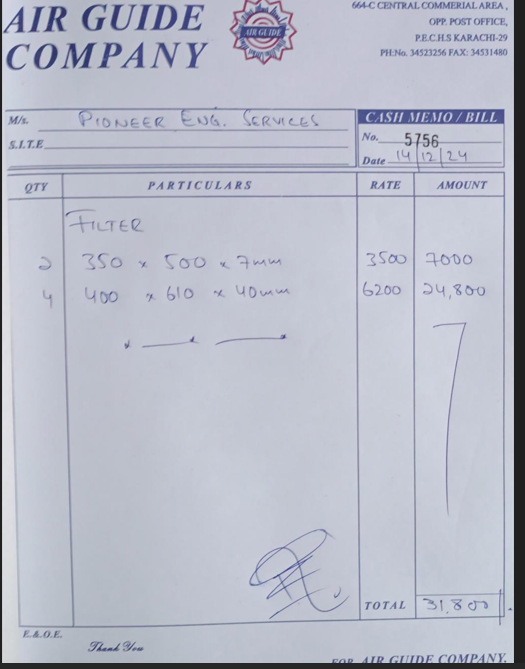 AIR GUIDE
COMPANY
AIR GUIDE
664-C CENTRAL COMMERIAL AREA,
OPP. POST OFFICE,
P.E.C.H.S KARACHI-29
PH:No. 34523256 FAX: 34531480
M/s. PIONEER ENG. SERVICES
S.I.T.E
CASH MEMO / BILL
No. 5756
Date 14/12/24
QTY PARTICULARS RATE AMOUNT
FILTER
2 350 x 500 x 7mm 3500 7000
4 400 x 610 x 40mm 6200 24,800
TOTAL 31,800
E.&.O.E.
Thank You
FOR AIR GUIDE COMPANY.